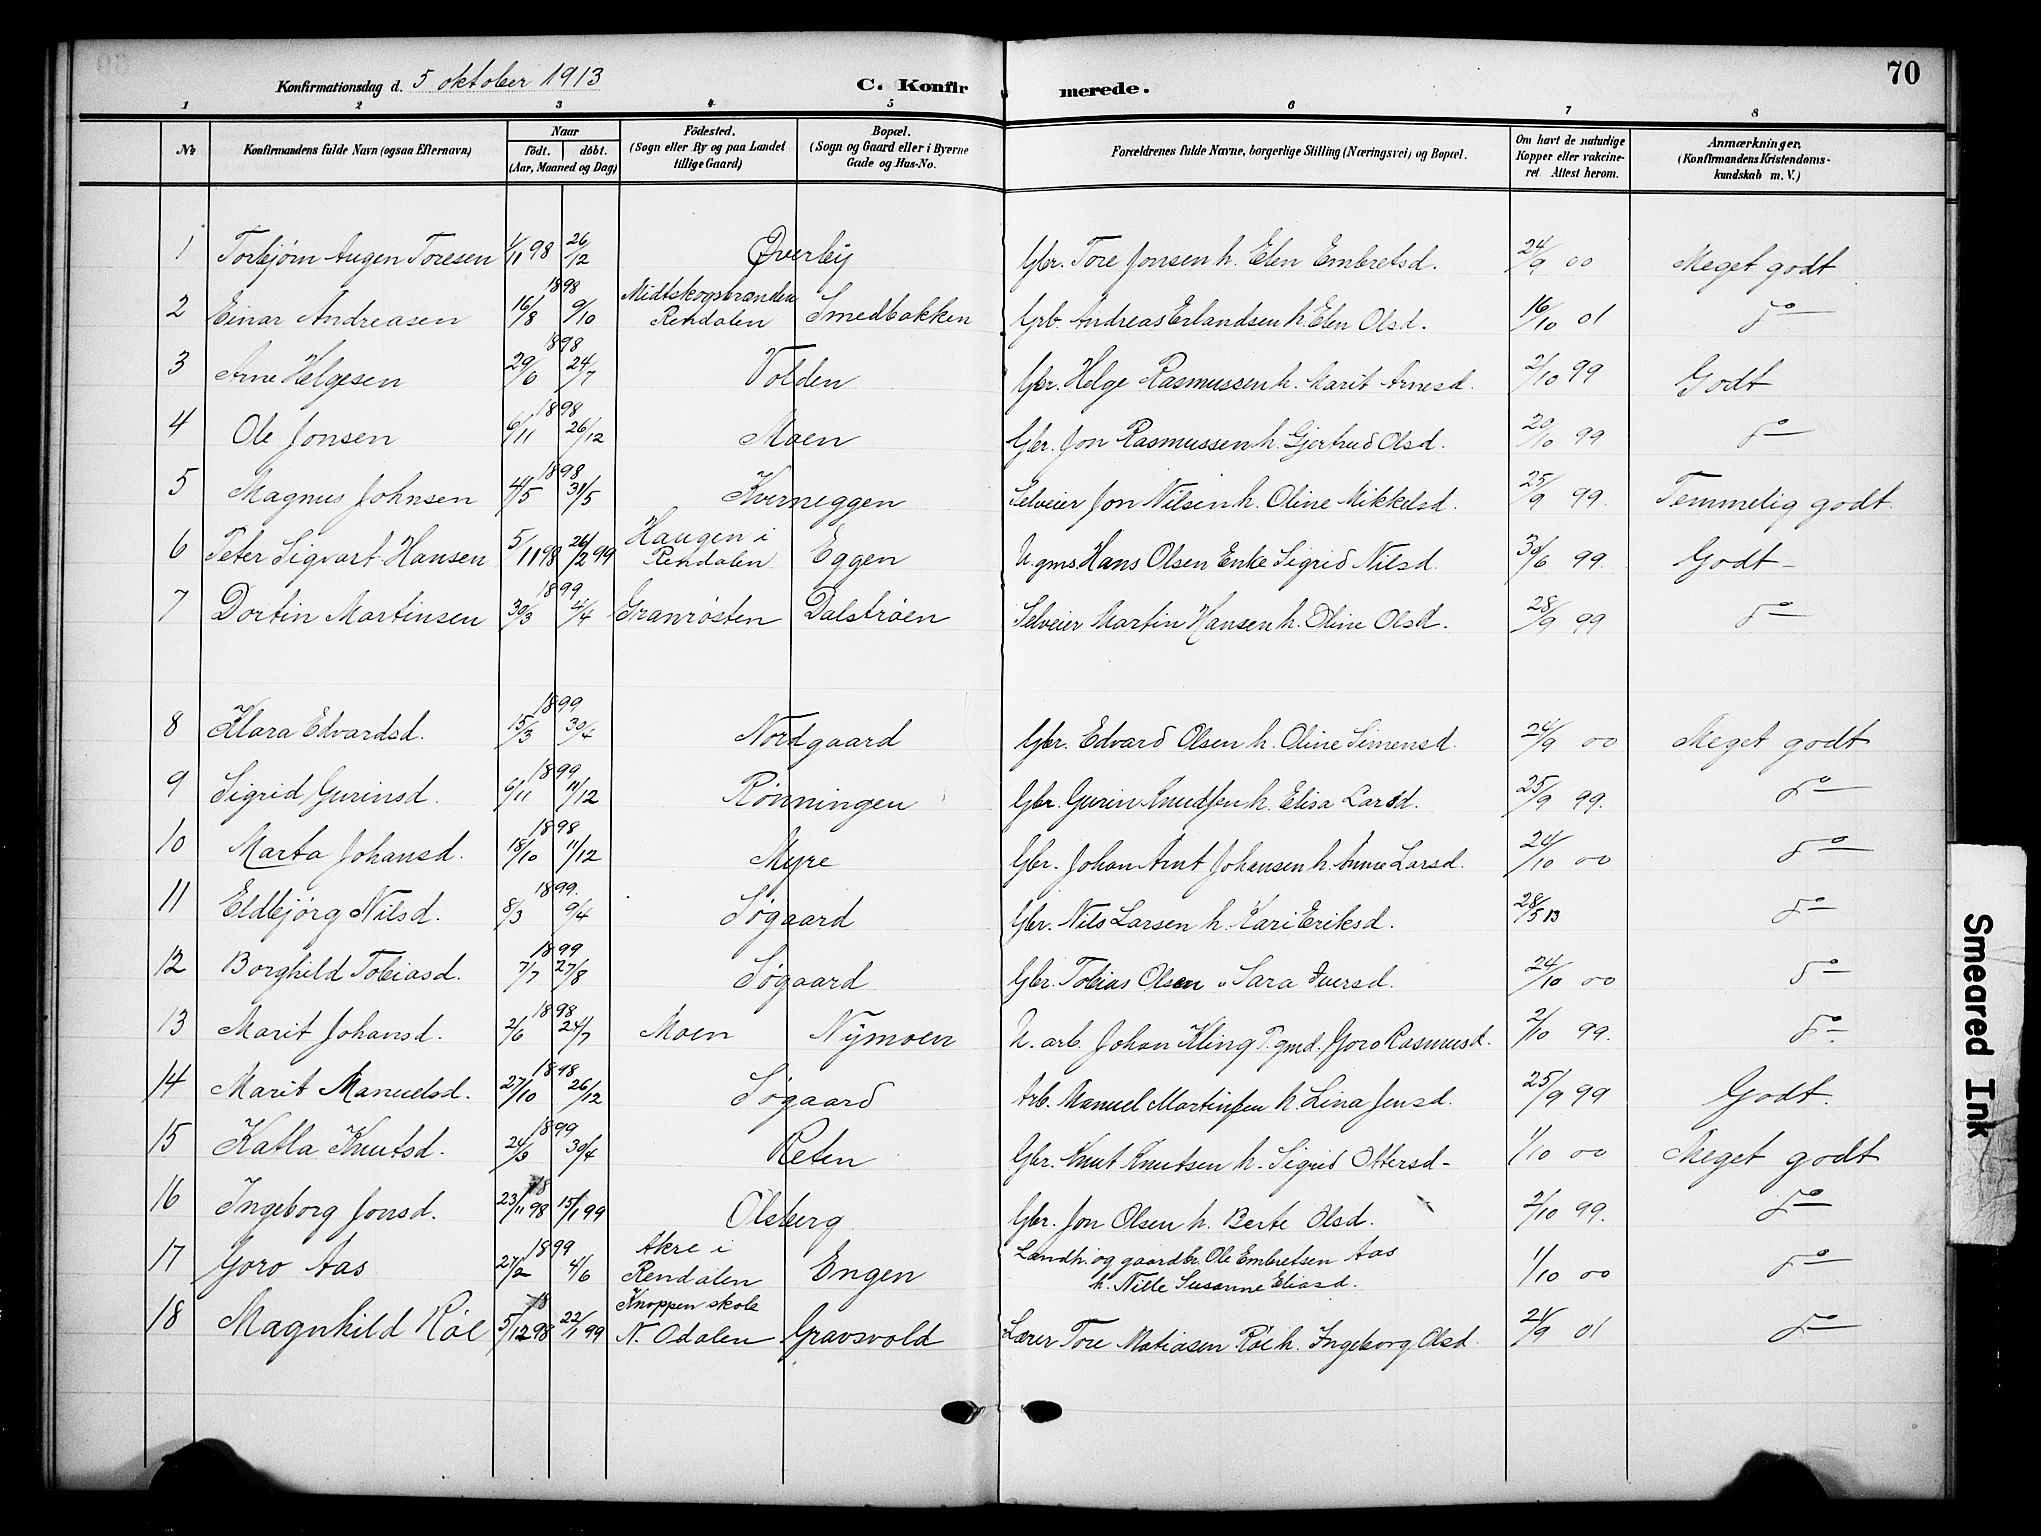 Konfirmationsdag d. 5 oktober 1913 C. Konfir merede. 70
1 2 3 4 5 6 7 8
No Konfirmandens fulde Navn (ogsaa Efternavn) Naar födt. döbt. (Aar, Maaned og Dag) Födested. (Sogn eller By og paa Landet tillige Gaard) Bopæl. (Sogn og Gaard eller i Byerne Gade og Hus-No. Forældrenes fulde Navne, borgerlige Stilling (Næringsvei) og Bopæl. Om havt de naturlige Kopper eller vakcineret. Attest herom. Anmærkninger, (Konfirmandens Kristendomskundskab m. V.)
1 Torbjørn Augen Toresen 1/11 98 26/12 Øverby Gbr. Tore Jonsen h. Elen Embretsd. 24/9 00 Meget godt
2 Einar Andreasen 1898 16/8 9/10 Midtskogsbrænden Rendalen Smedbakken Grb. Andreas Erlandsen h. Elen Olsd. 16/10 01 do
3 Arne Helgesen 1898 29/6 24/7 Volden Gbr. Helge Rasmussen h. Marit Arnesd. 2/10 99 Godt
4 Ole Jonsen 1898 6/11 26/12 Moen Gbr. Jon Rasmussen h. Gjertrud Olsd. 20/10 99 do
5 Magnus Johnsen 1898 4/5 31/5 Kverneggen Selveier Jon Nilsen h. Oline Mikkelsd. 25/9 99 Temmelig godt.
6 Peter Sigvart Hansen 5/11 98 26/2 99 Haugen i Rendalen Eggen U. gms Hans Olsen Enke Sigrid Nilsd. 30/6 99. Godt
7 Dortin Martinsen 1899 30/3 4/4 Granrøsten Dalstrøen Selveier Martin Hansen h. Oline Olsd. 28/9 99 do
8 Klara Edvardsd. 1899 15/3 30/4 Nordgaard Gbr. Edvard Olsen h. Oline Simensd. 24/9 00 Meget godt
9 Sigrid Gurinsd. 1899 6/11 11/12 Rønningen Gbr. Gurin Knudsen h. Elisa Larsd. 25/9 99. do
10 Marta Johansd. 1898 18/10 11/12 Myre Gbr. Johan Arnt Johansen h. Anne Larsd. 24/10 00 do
11 Eldbjørg Nilsd. 1899. 8/3 9/4 Søgaard Gbr. Nils Larsen h. Kari Eriksd. 28/5 13 do
12 Borghild Tobiasd. 1899 7/7 27/8 Søgaard Gbr. Tobias Olsen " Sara Iversd. 24/10 00 do
13 Marit Johansd. 1898 2/6 24/7 Moen Nymoen U. arb. Johan Kling P. gmd. Goro Rasmusd. 2/10 99. do
14 Marit Manuelsd. 1898 27/10 26/12 Søgaard Arb. Manuel Martinsen h. Lina Jensd. 25/9 99 Godt.
15 Katla Knutsd. 1899 24/3 30/4 Reten Gbr. Knut Knutsen h. Sigrid Ottersd- 1/10 00 Meget godt
16 Ingeborg Jonsd. 18 23/11 98 15/1 99 Olsberg Gbr. Jon Olsen h. Berte Olsd. 2/10 99. do
17 Goro Aas 1899 27/2 4/6 Akre i Rendalen Engen Landh. og gaardbr. Ole Embretsen Aas h. Nille Susanne Eliasd. 1/10 00 do
18 Magnhild Røe 18 5/12 98 22/1 99 Knoppen skole N. Odalen Gravsvold Lærer Tore Matiasen Røe h. Ingeborg Olsd. 24/9 01 do
Smeared Ink